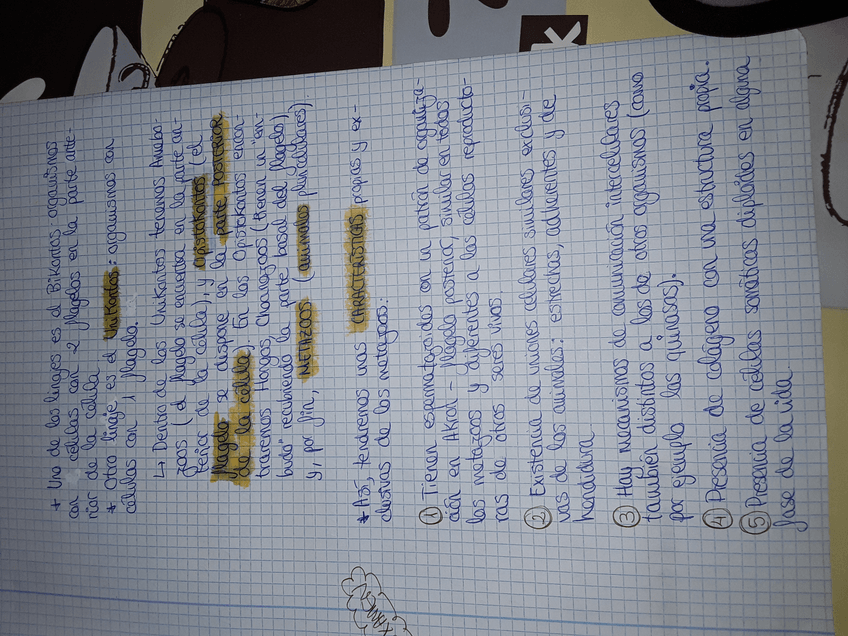 * Uno de los linajes es el Bikontos organismos
con células con 2 flagelos en la parte ante-
rior de la célula
* Otro linaje es el Unikontos: organismos con
células con 1 flagelo.
↳ Dentro de los Unikontos tenemos Amebo-
zoos (el flagelo se encuentra en la parte an-
terior de la célula), y Opistokontos (el
flagelo se dispone en la parte posterior
de la célula). En los Opistokontos encon-
traremos Hongos, Choanozoos (tienen un "em-
budo" recubriendo la parte basal del flagelo)
y, por fin, METAZOOS (animales pluricelulares).
* Así, tendremos unas CARACTERÍSTICAS propias y ex-
clusivas de los metazoos:
① Tienen espermatozoides con un patrón de organiza-
ción en - flagelo posterior, similar en todos
los metazoos y diferentes a las células reproducto-
ras de otros seres vivos.
② Existencia de uniones celulares similares exclusi-
vas de los animales: estrechas, adherentes y de
hendidura
③ Hay mecanismos de comunicación intercelulares
también distintos a los de otros organismos (como
por ejemplo las quinasas).
④ Presencia de colágeno con una estructura propia.
⑤ Presencia de células somáticas diploides en alguna
fase de la vida
K